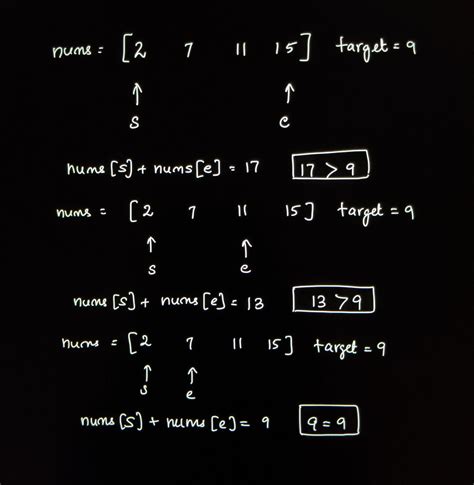 nums = [2 7 11 15] target = 9
↑ ↑
s e
nums[s] + nums[e] = 17 17 > 9
nums = [2 7 11 15] target = 9
↑ ↑
s e
nums[s] + nums[e] = 13 13 > 9
nums = [2 7 11 15] target = 9
↑ ↑
s e
nums[s] + nums[e] = 9 9 = 9